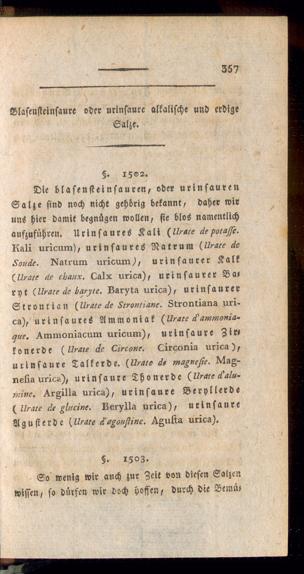 357
Blasensteinsaure oder urinsaure alkalische und erdige
Salze.
§. 1502.
Die blasensteinsauren, oder urinsauren
Salze sind noch nicht gehörig bekannt, daher wir
uns hier damit begnügen wollen, sie blos namentlich
aufzuführen. Urinsaures Kali (Urate de potasse.
Kali uricum), urinsaures Natrum (Urate de
Soude. Natrum uricum), urinsaurer Kalk
(Urate de chaux. Calx urica), urinsaurer Ba-
ryt (Urate de baryte. Baryta urica), urinsaurer
Strontian (Urate de Strontiane. Strontiana uri-
ca), urinsaures Ammoniak (Urate d'ammonia-
que. Ammoniacum uricum), urinsaure Zir-
konerde (Urate de Circone. Circonia urica),
urinsaure Talkerde. (Urate de magnesie. Mag-
nesia urica), urinsaure Thonerde (Urate d'alu-
mine. Argilla urica), urinsaure Beryllerde
(Urate de glucine. Berylla urica), urinsaure
Agusterde (Urate d'agoustine. Agustia urica).
§. 1503.
So wenig wir auch zur Zeit von diesen Salzen
wissen, so dürfen wir doch hoffen, durch die Bemü-